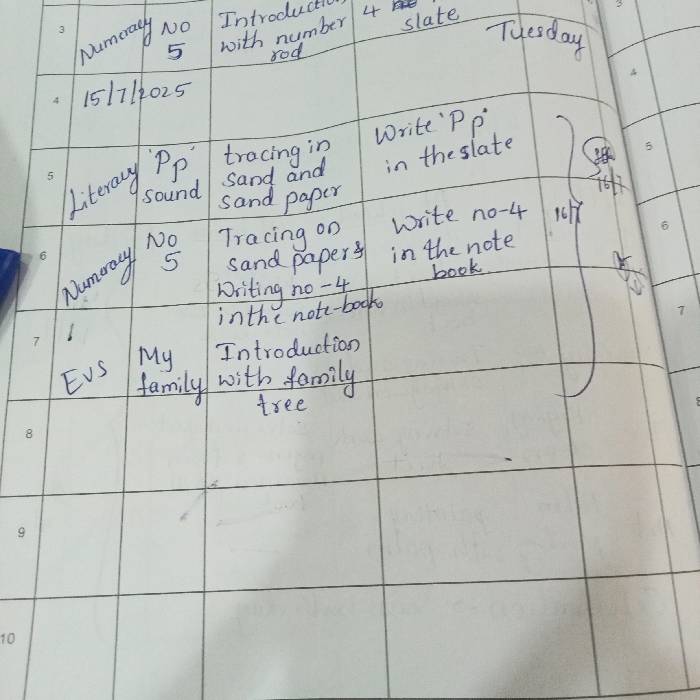 3 Numeracy No 5 Introduction with number rod 4 slate
Tuesday
4 15/7/2025
5 Literacy 'Pp' sound tracing in sand and sand paper Write 'Pp' in the slate
6 Numeracy No 5 Tracing on sand paper & Writing no-4 in the note-book Write no-4 in the note book 16/7
16/7
7 EVS My family Introduction with family tree
8
9
10
3
4
5
6
7
8